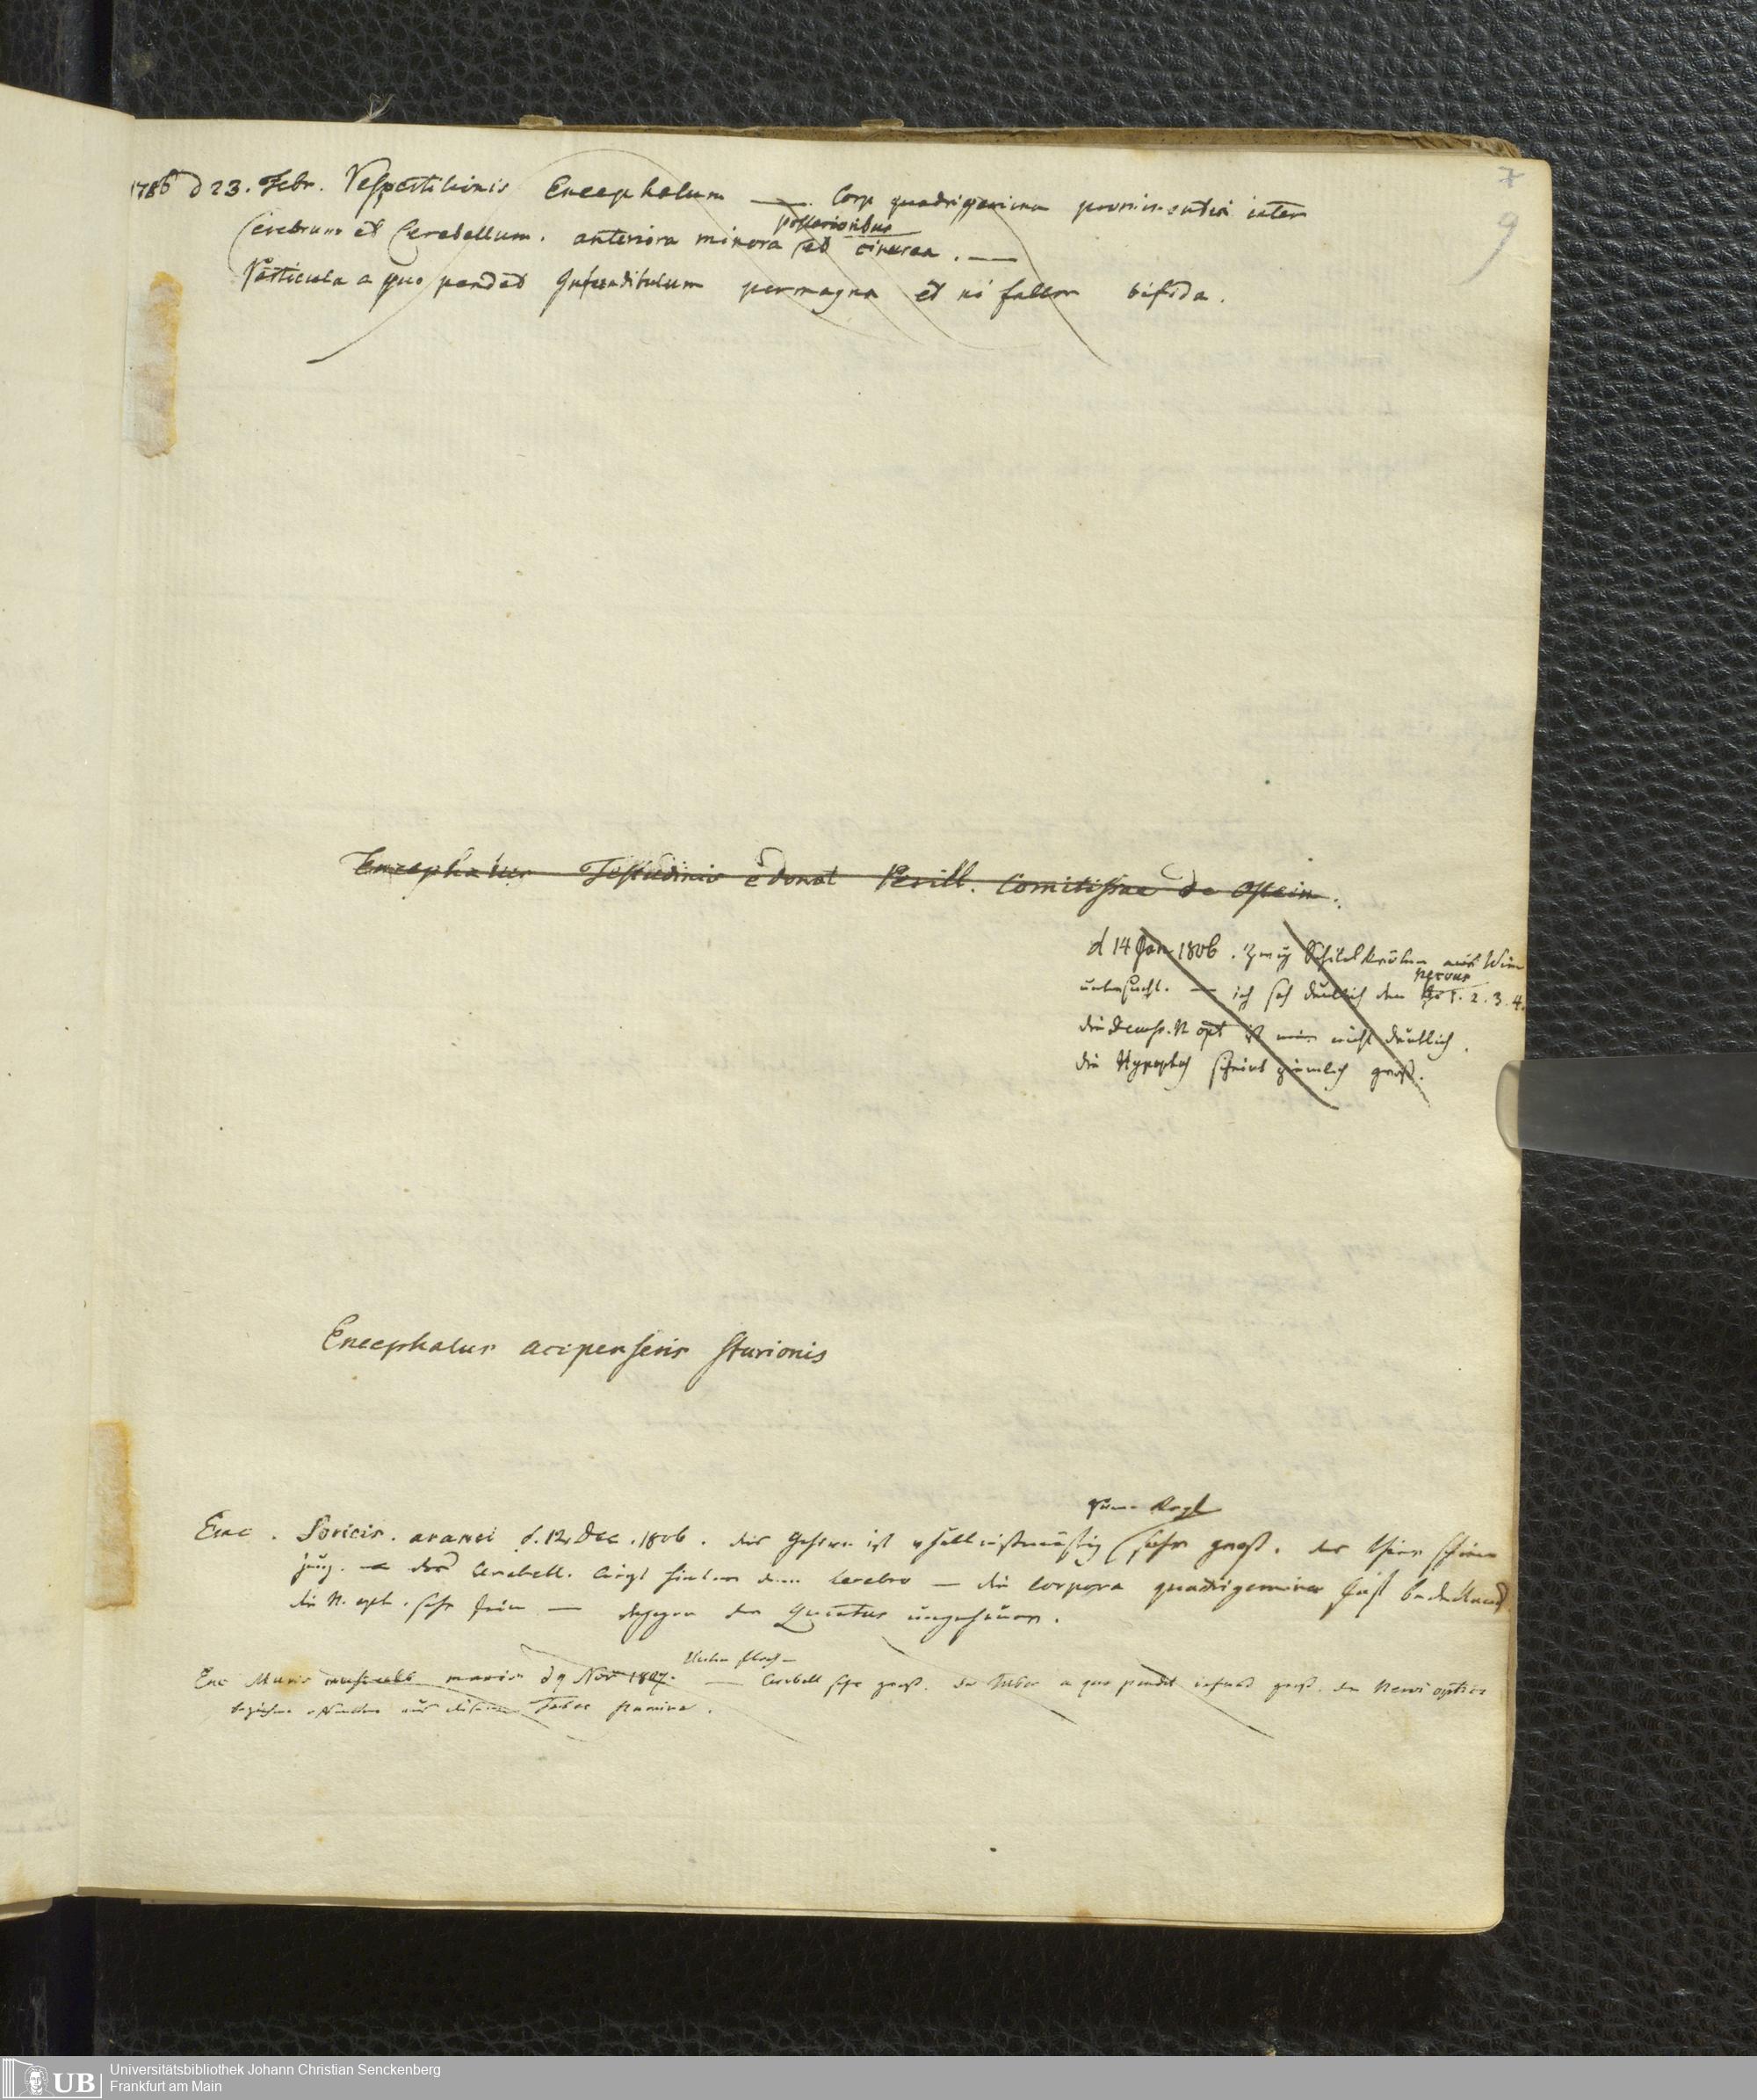 7
9
1786 d 23. Febr. Vespertilionis Encephalum — Corp quadrigemina prominentia inter
Cerebrum et Cerebellum. anteriora minora posterioribus et cinerea. —
Particula a quo pendet Infundibulum permagna et ni fallor bifida.
Encephalus Testudinis e donat Perill. Comitissae de Ostein.
d 14 Jan 1806. Zwey Schildkröten aus Wien
untersucht. — ich sah deutlich den Nervus 1. 2. 3. 4.
die Decuss. N opt ist nicht deutlich.
die Hypophys scheint ziemlich gross.
Encephalus acipenseris Sturionis
Enc. Soricis. aranei d. 12. Dec. 1806. das Gehirn ist sehr gross. das Thier schien
jung. — das Cerebell. liegt hinter dem Cerebro — die corpora quadrigemina fast bedeckend
die N. opt. sehr fein — dagegen der Quintus ungeheuer.
Enc Muris d 9 Nov 1807. — Cerebell sehr gross. der Tuber a quo pendet infund gross. der Nervi optici
aus diesem Tuber stamina.
UB Universitätsbibliothek Johann Christian Senckenberg
Frankfurt am Main